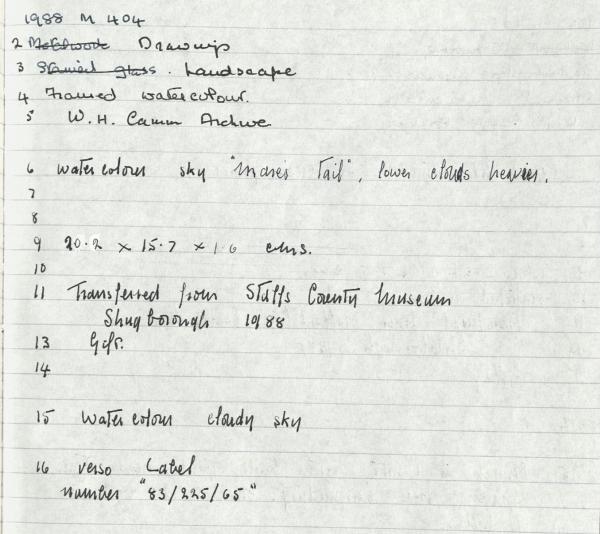 1988 M 404
2 Metalwork Drawings
3 Stained glass. Landscape
4 Framed watercolour.
5 W.H. Camm Archive
6 watercolour sky "mares Tail", lower clouds heavier.
7
8
9 20.2 x 15.7 x 1.6 cms.
10
11 Transferred from Staffs County Museum
Shugborough 1988
13 Gift.
14
15 Watercolour cloudy sky
16 verso Label
number "83/225/65"